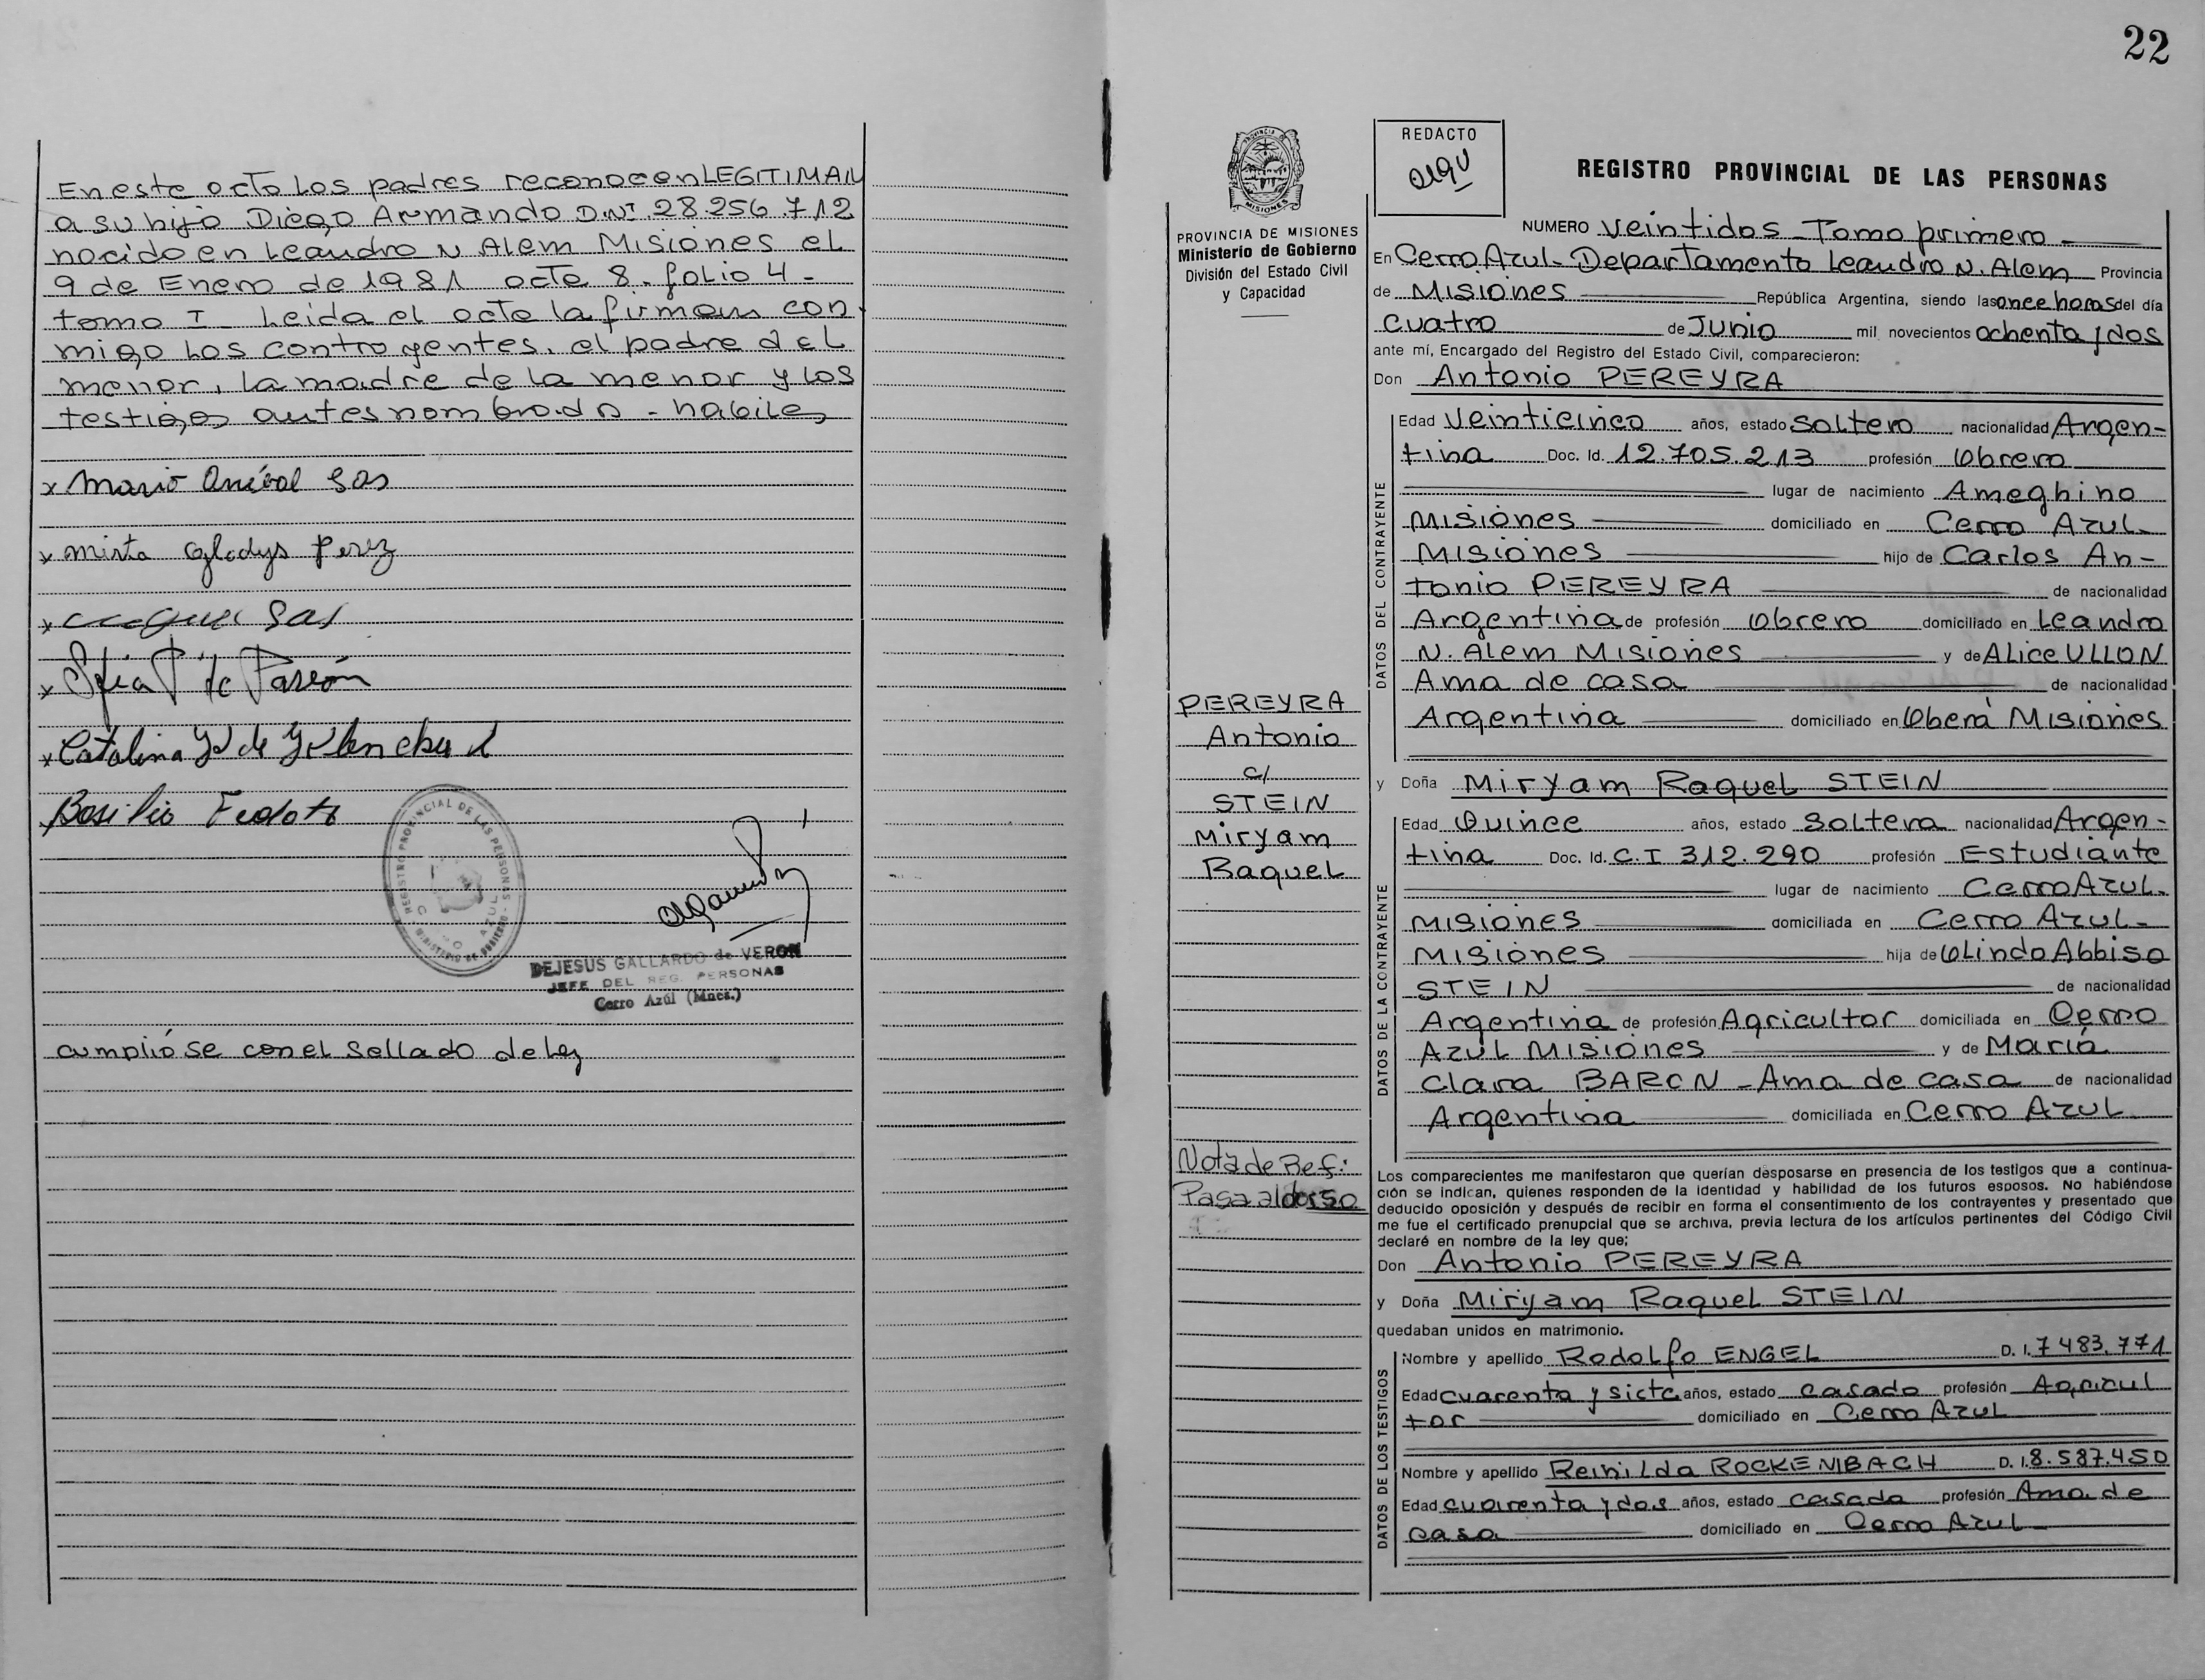 En este acto Los padres reconocen LEGITIMAN
a su hijo Diego Armando D.N.I. 28.256.712
nacido en Leandro N Alem Misiones el
9 de Enero de 1981 acta 8. folio 4 -
tomo I - Leida el acta la firman con
migo Los contrayentes, el padre del
menor, la madre de la menor y los
testigos antes nombrado - habiles
x Mario Anibal Sas
x Mirta Gladys Perez
x Sas
x
x Catalina de
Basilio
REGISTRO PROVINCIAL DE LAS PERSONAS
MINISTERIO DE GOBIERNO
DEJESUS GALLARDO de VERON
JEFE DEL REG. PERSONAS
Cerro Azúl (Mnes.)
cumplióse con el Sellado de Ley
22
PROVINCIA DE MISIONES
Ministerio de Gobierno
División del Estado Civil
y Capacidad
PEREYRA
Antonio
c/
STEIN
Miryam
Raquel
Nota de Ref:
Pasa al dorso
REDACTO
REGISTRO PROVINCIAL DE LAS PERSONAS
NUMERO Veintidos - Tomo primero -
En Cerro Azul - Departamento Leandro N. Alem Provincia
de Misiones República Argentina, siendo las once horas del día
Cuatro de Junio mil novecientos ochenta y dos
ante mí, Encargado del Registro del Estado Civil, comparecieron:
Don Antonio PEREYRA
DATOS DEL CONTRAYENTE
Edad Veinticinco años, estado Soltero nacionalidad Argen-
tina Doc. Id. 12.705.213 profesión Obrero
lugar de nacimiento Ameghino
Misiones domiciliado en Cerro Azul-
Misiones hijo de Carlos An-
tonio PEREYRA de nacionalidad
Argentina de profesión Obrero domiciliado en Leandro
N. Alem Misiones y de Alice ULLON
Ama de casa de nacionalidad
Argentina domiciliado en Oberá Misiones
y Doña Miryam Raquel STEIN
DATOS DE LA CONTRAYENTE
Edad Quince años, estado Soltera nacionalidad Argen-
tina Doc. Id. C.I 312.290 profesión Estudiante
lugar de nacimiento Cerro Azul-
Misiones domiciliada en Cerro Azul-
Misiones hija de Olindo Abbiso
STEIN de nacionalidad
Argentina de profesión Agricultor domiciliada en Cerro
Azul Misiones y de María
Clara BARON - Ama de casa de nacionalidad
Argentina domiciliada en Cerro Azul
Los comparecientes me manifestaron que querían desposarse en presencia de los testigos que a continua-
ción se indican, quienes responden de la identidad y habilidad de los futuros esposos. No habiéndose
deducido oposición y después de recibir en forma el consentimiento de los contrayentes y presentado que
me fue el certificado prenupcial que se archiva, previa lectura de los artículos pertinentes del Código Civil
declaré en nombre de la ley que;
Don Antonio PEREYRA
y Doña Miryam Raquel STEIN
quedaban unidos en matrimonio.
DATOS DE LOS TESTIGOS
Nombre y apellido Rodolfo ENGEL D. I. 7483.771
Edad cuarenta y siete años, estado casado profesión Agricul
tor domiciliado en Cerro Azul
Nombre y apellido Reinilda ROCKENBACH D. I. 8.587.450
Edad cuarenta y dos años, estado casada profesión Ama de
casa domiciliado en Cerro Azul